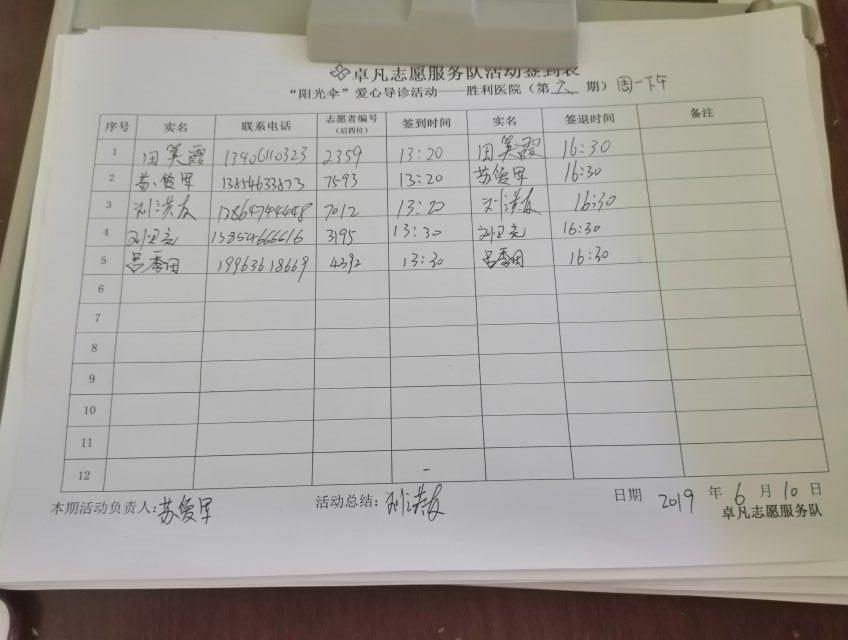 卓凡志愿服务队活动签到表
“阳光伞”爱心导诊活动——胜利医院（第六期）周一下午
序号 实名 联系电话 志愿者编号（后四位） 签到时间 实名 签退时间 备注
1 田美霞 13406110323 2359 13:20 田美霞 16:30
2 苏俊军 13854633873 7593 13:20 苏俊军 16:30
3 刘洪友 13864744448 7012 13:20 刘洪友 16:30
4 刘卫亮 13854666616 3195 13:30 刘卫亮 16:30
5 吕秀田 19963618669 4392 13:30 吕秀田 16:30
6
7
8
9
10
11
12
本期活动负责人:苏俊军 活动总结:刘洪友 日期 2019 年 6 月 10 日
卓凡志愿服务队